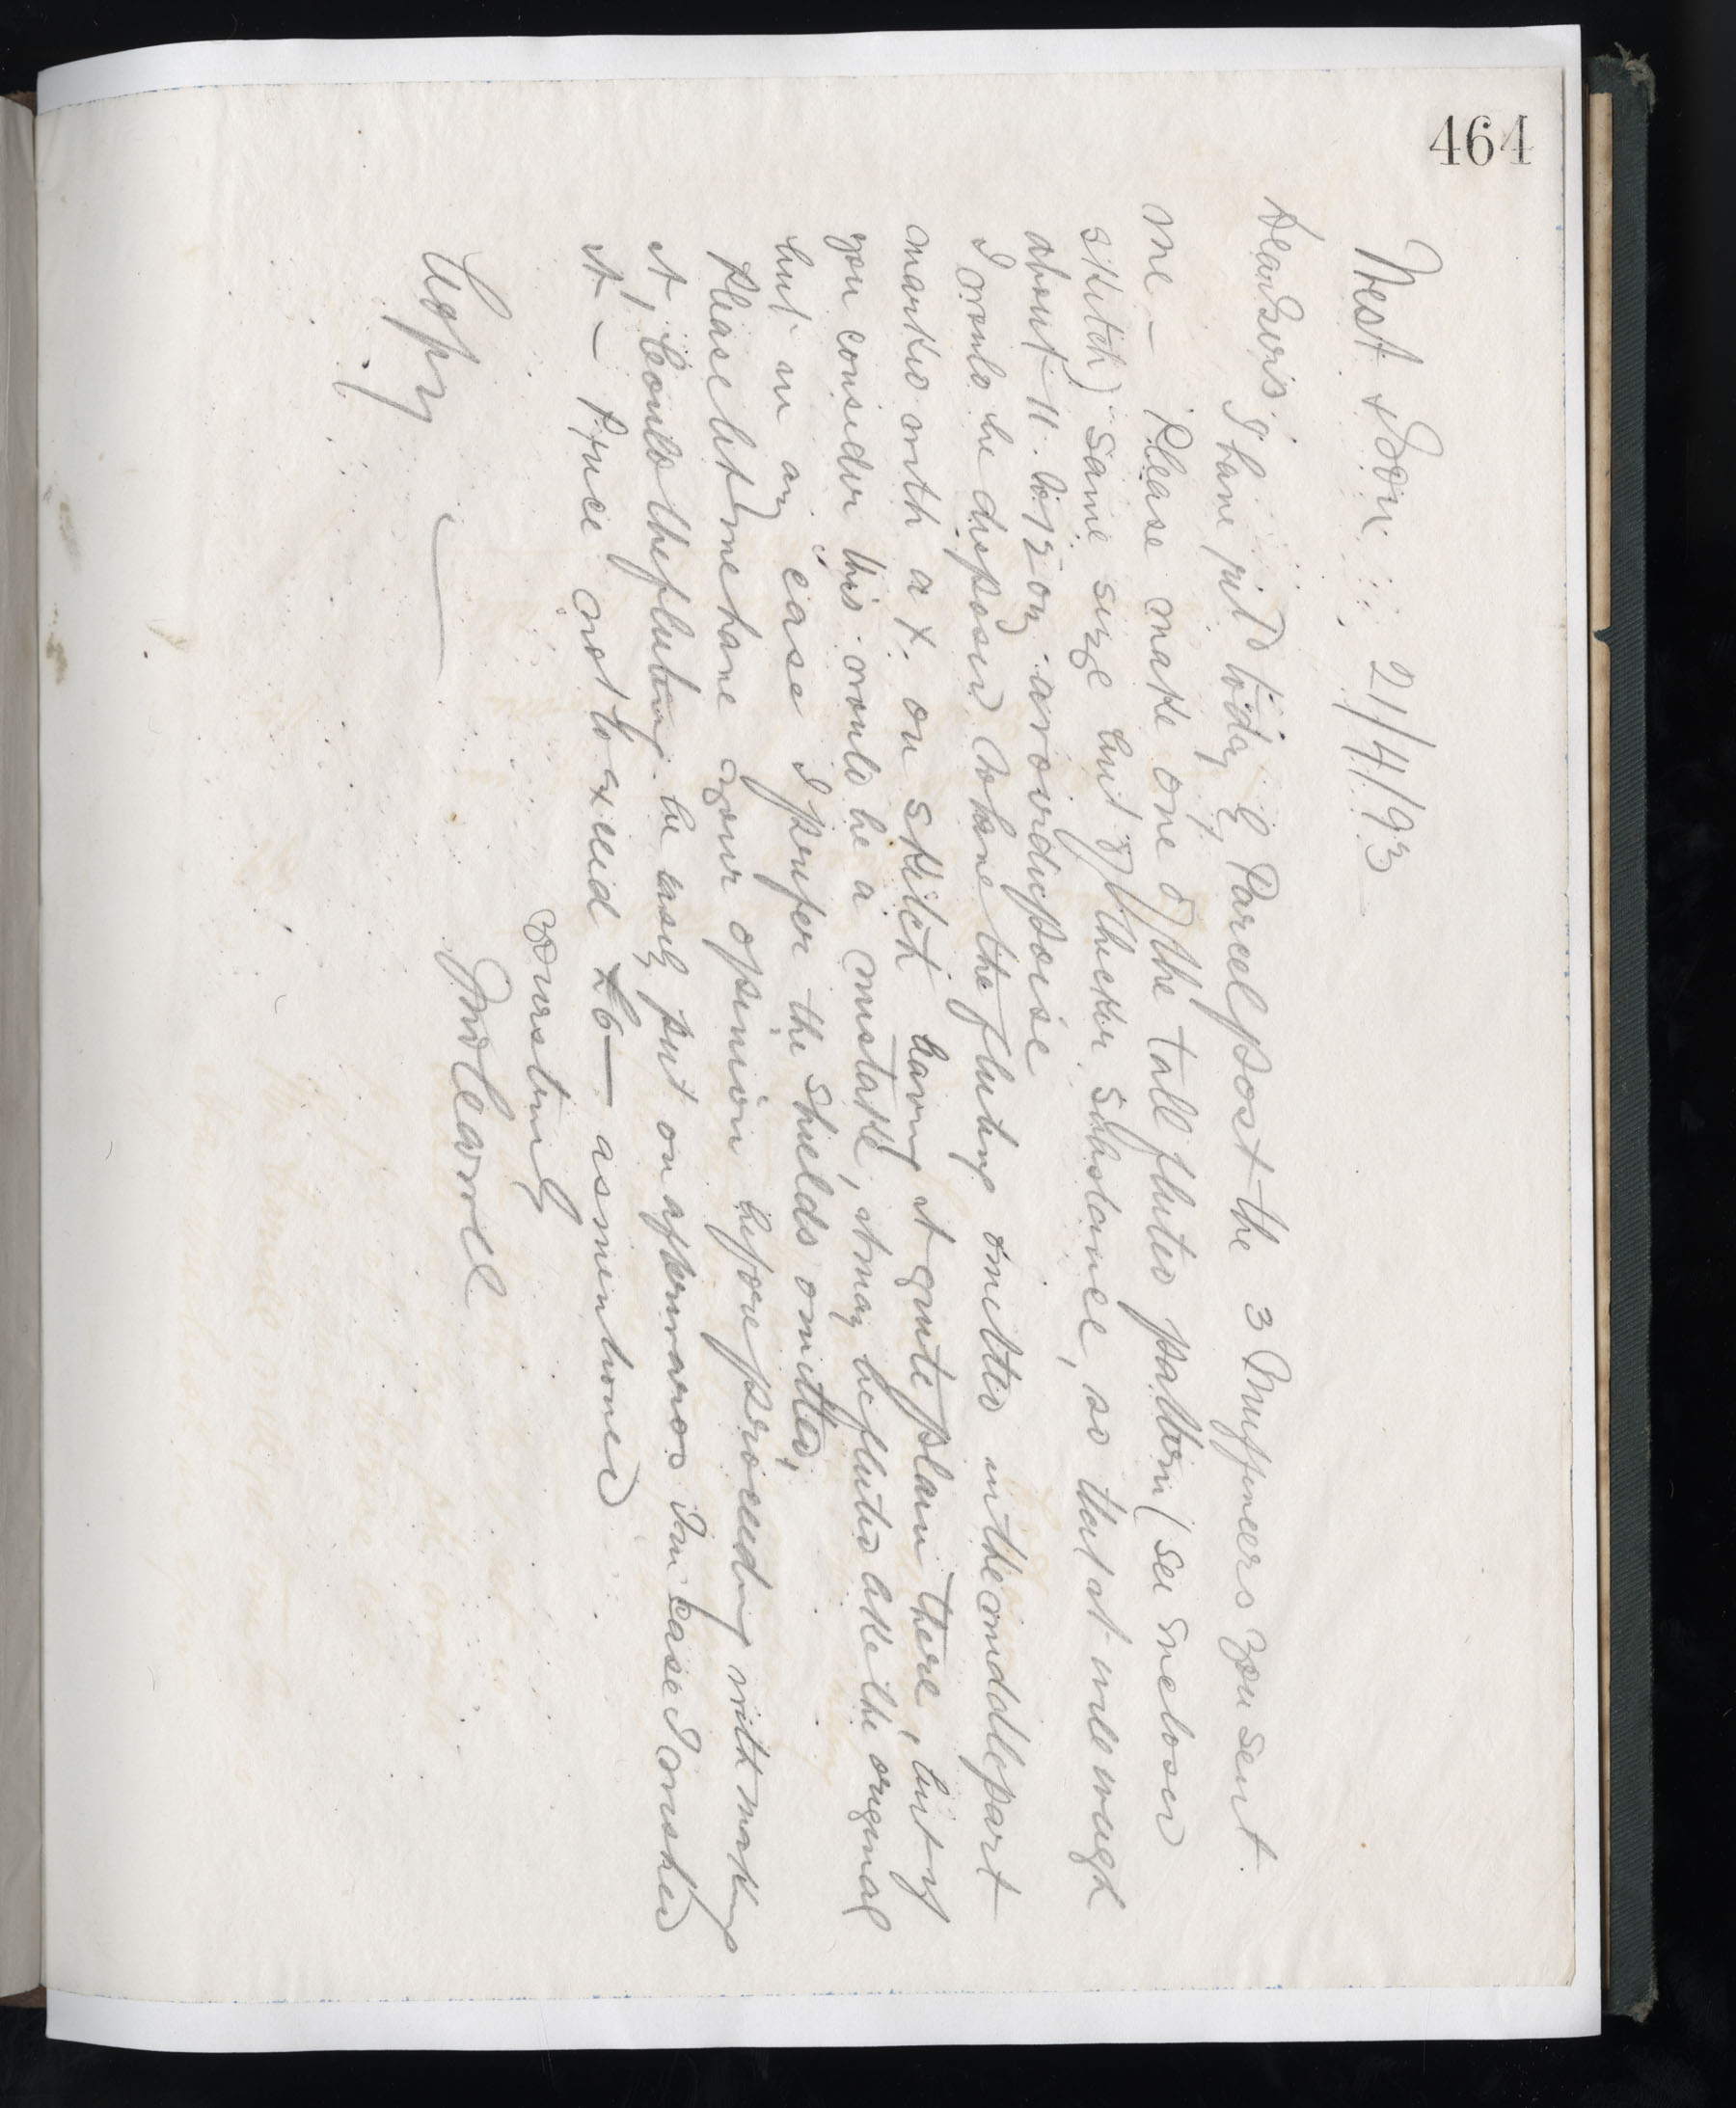 464
West & Son 21/4/93
Dear Sirs,
I have recd today by Parcel post the 3 Muffineers you sent
me – Please make one of the tall fluted pattern (see enclosed
sketch) same size but of thicker substance, so that it will weigh
about 11 to 12 oz avoirdupoise
I would be disposed to have the fluting omitted in the middle part
marked with a X on sketch leaving it quite plain there, but if
you consider this would be a mistake, it may be fluted like the original
but in any case I prefer the shields omitted,
Please let me have your opinion before proceeding with making
it, Could the fluting be easily put on afterwards in case I wished
it – Price not to exceed £6 – as mentioned
yours truly
Copy